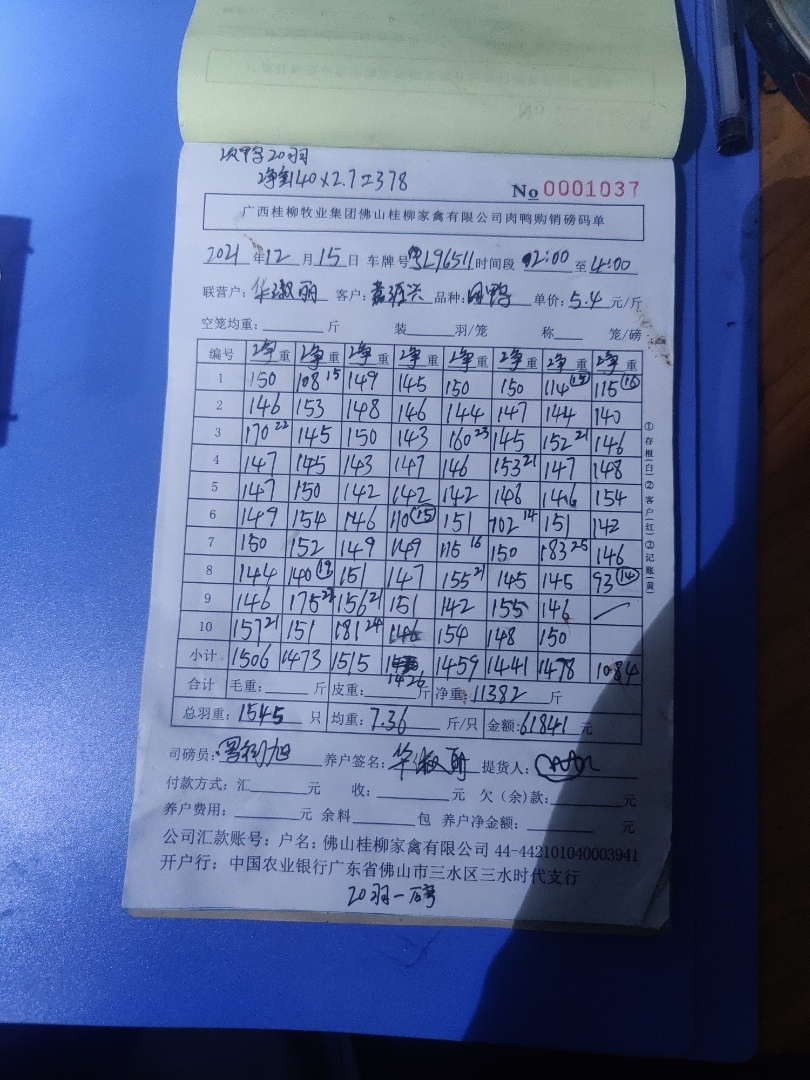 次鸭20羽
净重140×2.7=378
No 0001037
广西桂柳牧业集团佛山桂柳家禽有限公司肉鸭购销磅码单
2021年12月15日 车牌号粤L96511时间段 02:00 至 4:00
联营户：华淑丽 客户：嘉源兴 品种：肉鸭 单价：5.4 元/斤
空笼均重：斤 装 羽/笼 称 笼/磅
编号 净重 净重 净重 净重 净重 净重 净重 净重
1 150 108 15 149 145 150 150 114 (15) 115 (16)
2 146 153 148 146 144 147 144 140
3 170 22 145 150 143 160 23 145 152 21 146
4 147 145 143 147 146 153 21 147 148
5 147 150 142 142 142 146 146 154
6 149 154 146 110 (15) 151 102 14 151 142
7 150 152 149 149 115 16 150 183 25 146
8 144 140 (19) 151 147 155 21 145 145 93 (14)
9 146 175 156 21 151 142 155 146
10 157 21 151 181 24 154 148 150
小计 1506 1473 1515 1426 1459 1441 1478 1084
合计 毛重：斤 皮重：斤 净重：11382 斤
总羽重：1545 只 均重：7.36 斤/只 金额：61841 元
司磅员： 养户签名：华淑丽 提货人：
付款方式：汇 元 收： 元 欠（余）款： 元
养户费用： 元 余料 包 养户净金额： 元
公司汇款账号：户名：佛山桂柳家禽有限公司 44-442101040003941
开户行：中国农业银行广东省佛山市三水区三水时代支行
20羽一磅
①存根（白）②客户（红）③记账（黄）